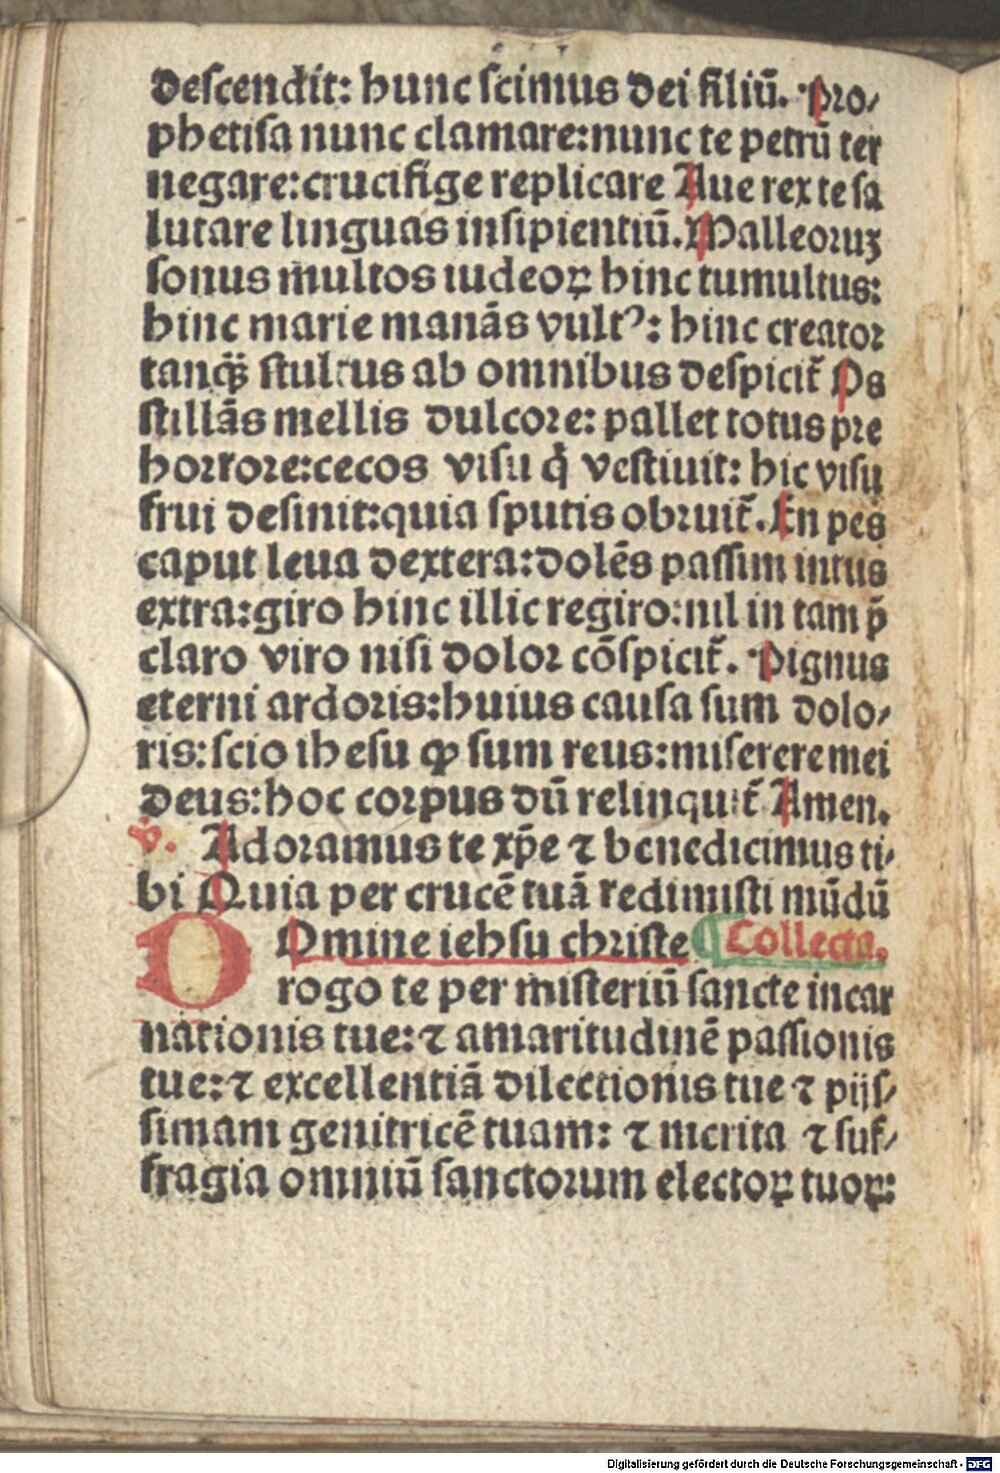 descendit: hunc scimus dei filiū. Pro⸗
phetisa nunc clamare:nunc te petrū ter
negare:crucifige replicare Aue rex te sa
lutare linguas insipientiū. Malleoruꝫ
sonus multos iudeoꝝ hinc tumultus:
hinc marie manās vultꝰ: hinc creator
tanqꝫ stultus ab omnibus despicit᷑ Os
stillās mellis dulcore: pallet totus pre
horrore:cecos visu q̇ vestiuit: hic visu
frui desinit:quia sputis obruit᷑. En pes
caput leua dextera:dolēs passim intus
extra:giro hinc illic regiro:nil in tam p̄
claro viro nisi dolor cōspicit᷑. Pignus
eterni ardoris:huius causa sum dolo⸗
ris:scio ihesu ꝙ sum reus:miserere mei
deus:hoc corpus dū relinquit᷑ Amen.
v. Adoramus te xp̄e ⁊ benedicimus ti⸗
bi Quia per crucē tuā redimisti mūdū
DOmine iehsu christe Collecta.
rogo te per misteriū sancte incar
nationis tue: ⁊ amaritudinē passionis
tue: ⁊ excellentiā dilectionis tue ⁊ pijs⸗
simam genitricē tuam: ⁊ merita ⁊ suf⸗
fragia omniū sanctorum electoꝝ tuoꝝ:
Digitalisierung gefördert durch die Deutsche Forschungsgemeinschaft - DFG